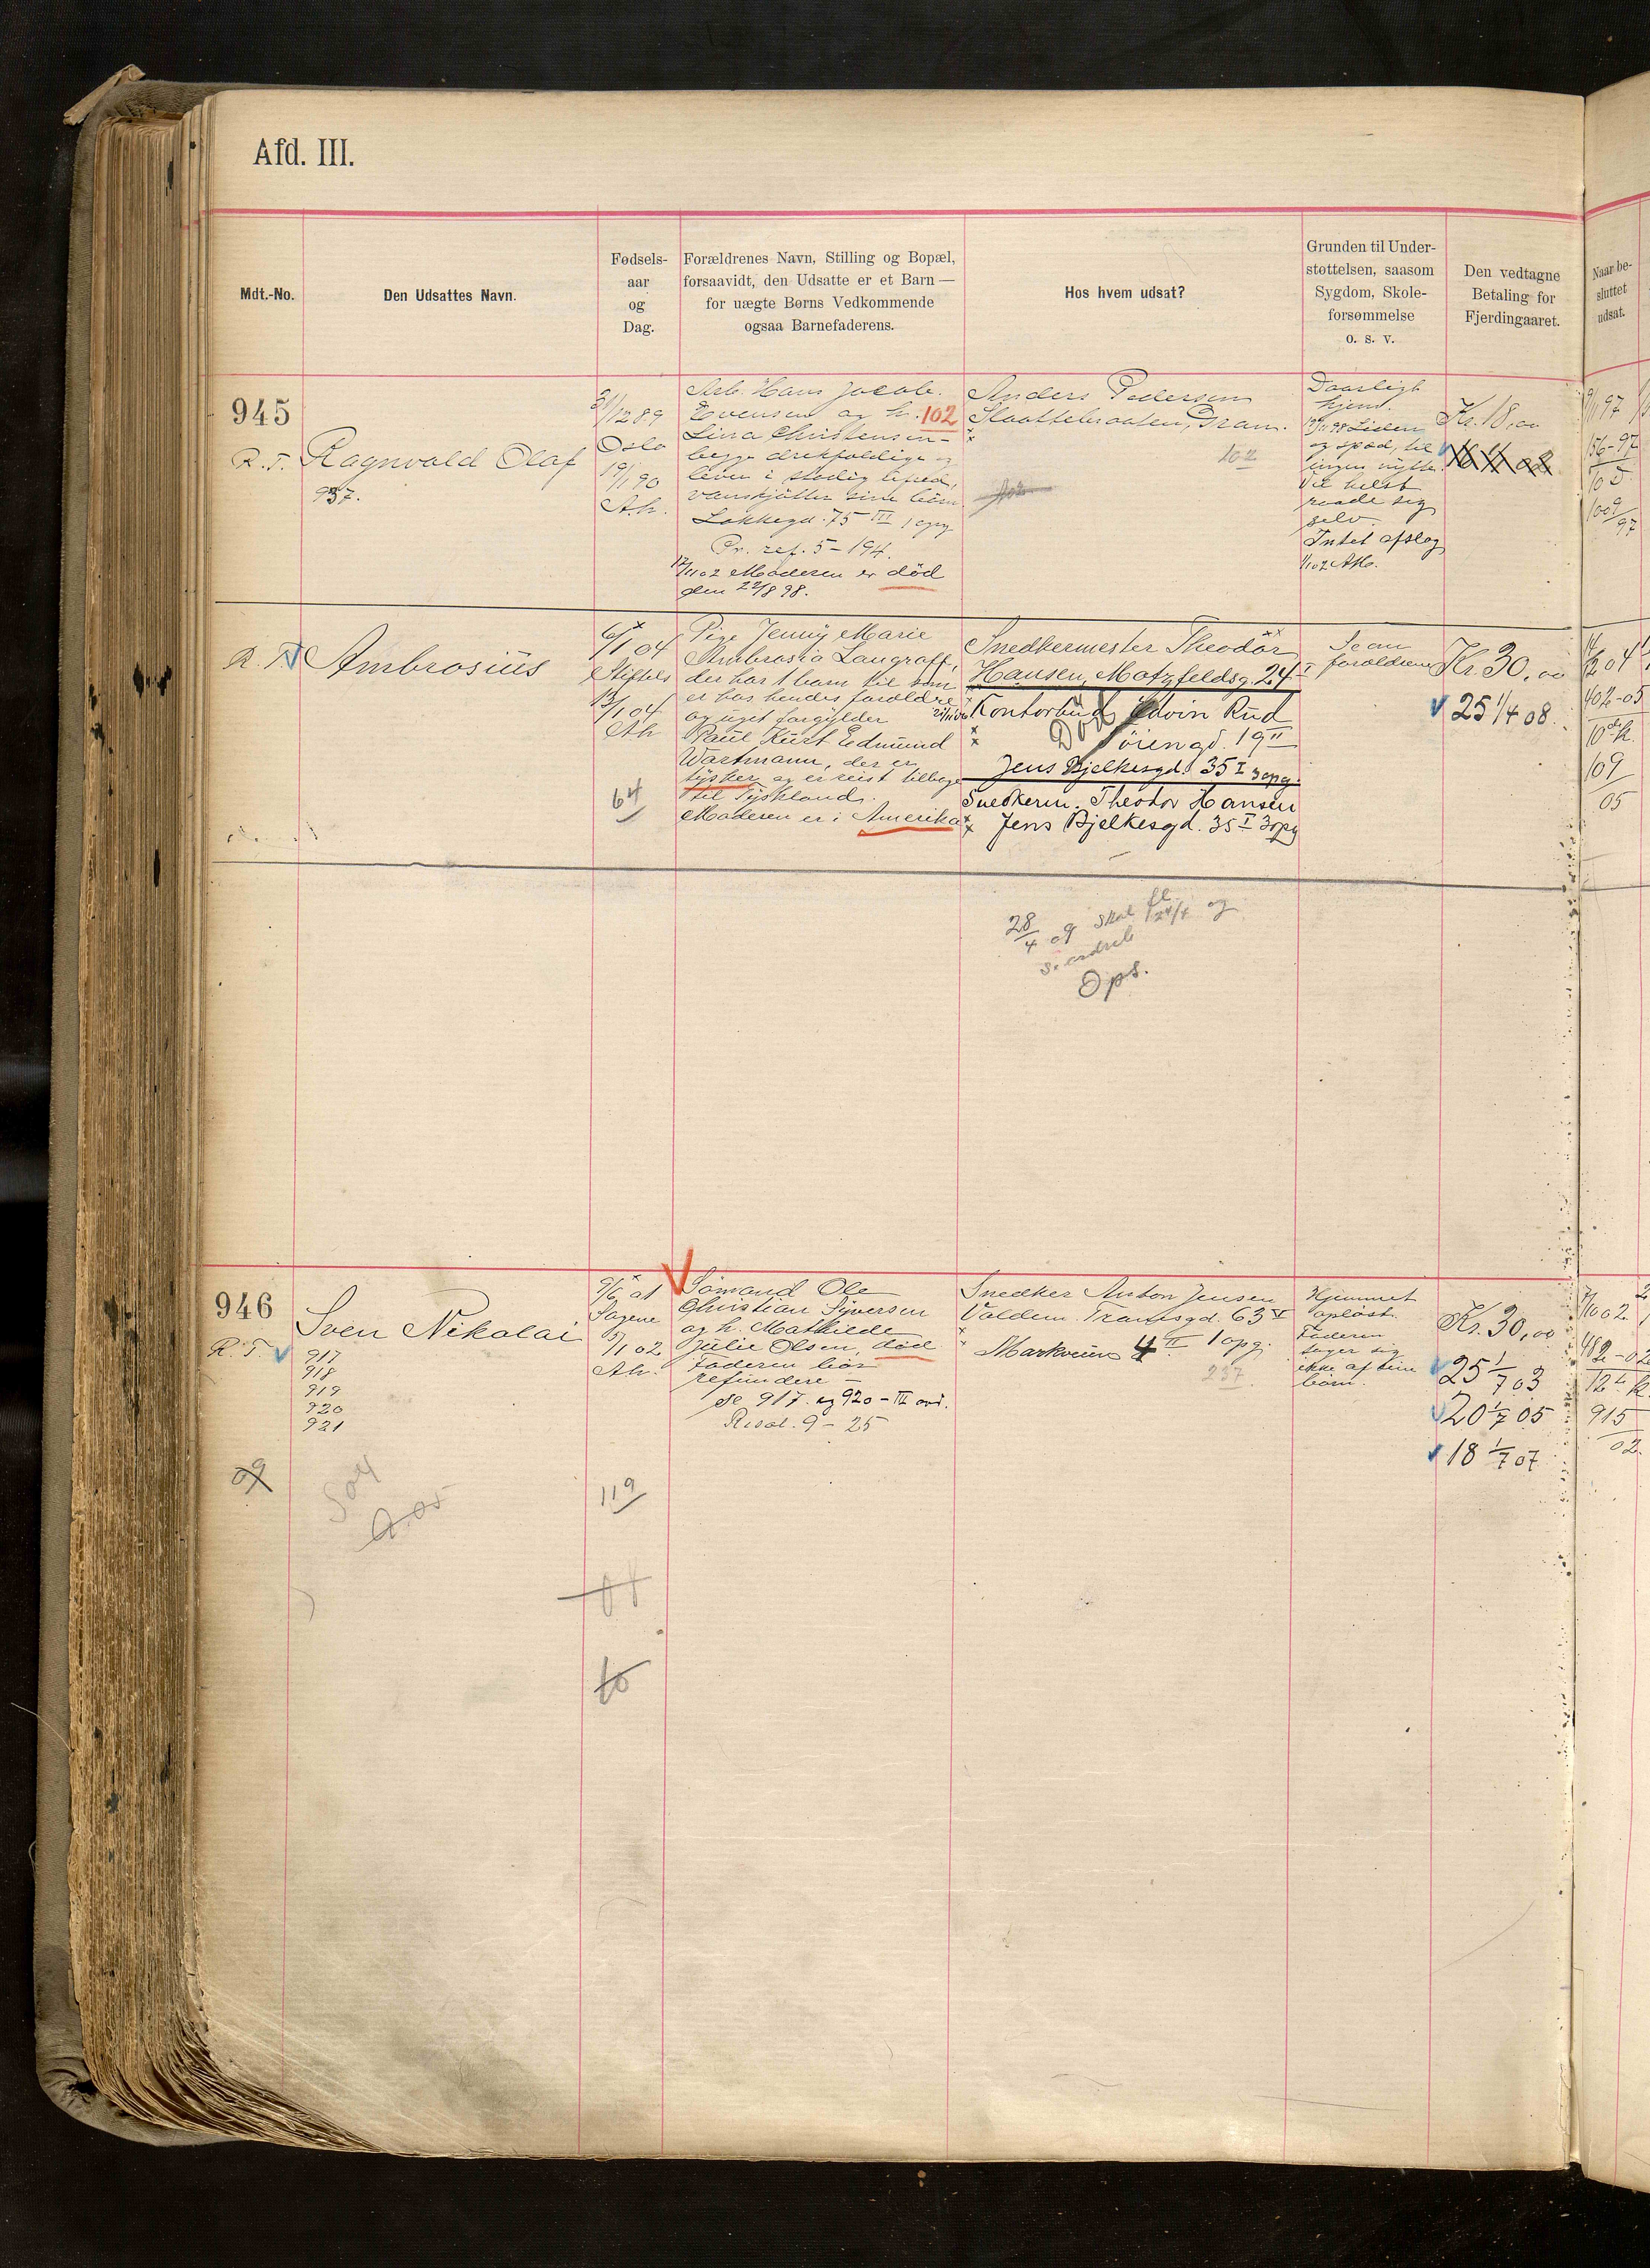 Afd. III.
Mdt.-No.
Den Udsattes Navn.
Fødsels-
aar
og
Dag.
Forældrenes Navn, Stilling og Bopæl,
forsaavidt, den Udsatte er et Barn —
for uægte Børns Vedkommende
ogsaa Barnefaderens.
Hos hvem udsat?
Grunden til Under-
støttelsen, saasom
Sygdom, Skole-
forsømmelse
o. s. v.
Den vedtagne
Betaling for
Fjerdingaaret.
Naar be-
sluttet
udsat.
945
R. T.
Ragnvald Olaf
937.
31/12 89
Oslo
19/1 90
Ah.
Arb. Hans Jacob
Evensen og h. 102
Lina Christensen -
begge drikfældige og
lever i stadig ufred,
vanskjötter sine börn
Lakkegd. 75 III 1 opg
Pr. ref. 5 - 194.
17/11 02 Moderen er död
den 22/8 98.
Anders Pedersen
Slaattebraaten, Gram.
102
Daarligt
hjem.
Liden
og spæd, til
ingen nytte.
Vil helst
raade sig
selv.
Intet afslag
1/1 02 AH.
Kr. 18,00
9/1 97
156-97
105
1009/97
R. T.
Ambrosius
6/1 04
Stiftels
13/1 04
Ah
64
Pige Jenny Marie
Ambrosia Langraff,
der har 1 barn til som
er hos hendes forældre
og uget forgylder
Paul Kurt Edmund
Wartmann, der er
tysker og er reist tilbage
til Tyskland.
Moderen er i Amerika
Snedkermester Theodor
Hansen, Motzfeldsg. 24 I
Kontorbud Edvin Rud
Död
Söiengd. 19 II
Jens Bjelkesgd. 35 I 3 opg.
Snedkerm. Theodor Hansen
Jens Bjelkesgd. 35 I 3 opg
Se an
forældrene
Kr. 30,00
25 1/4 08.
402-05
109/05
28/4 09 skal
Ops.
946
R. T.
Sven Nikolai
917
918
919
920
921
09
9/6 01
Sagene
5/1 02
Ah.
119
Sömand Ole
Christian Syversen
og h. Mathilde
Julie Olsen, död
Faderen bör
refundere -
Se 917 og 920 - III avd.
Resol. 9 - 25
Snedker Anton Jensen
Valdem. Tranesgd. 63 V
Markveien 4 II 1 opg.
237
Hjemmet
opløst.
Faderen
tager sig
ikke af sine
börn.
Kr. 30,00
25 1/7 03
20 1/7 05
18 1/7 07
915
02.